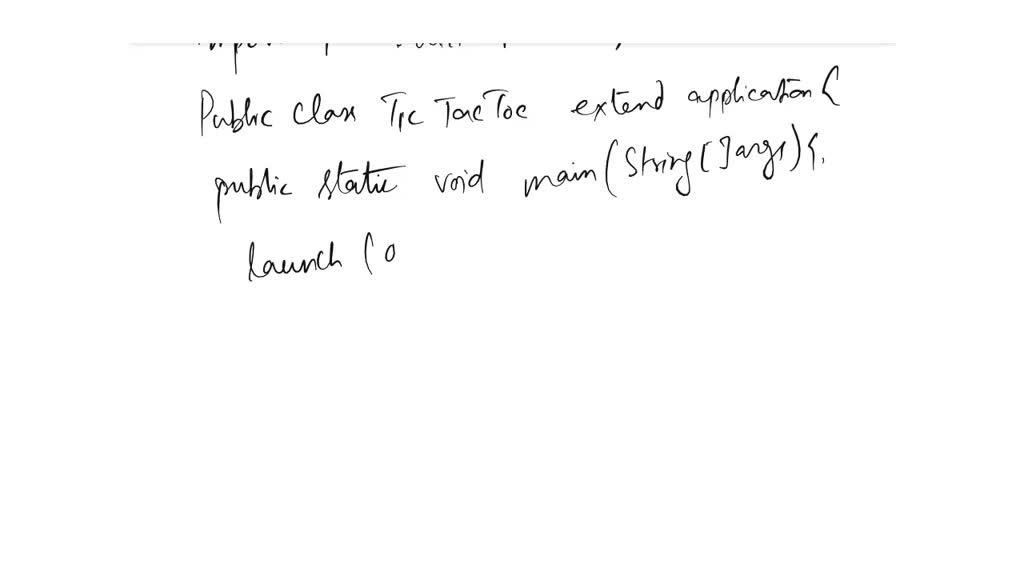 Public class Tic Tac Toe extend application {
public static void main (String [] args) {
launch ( a